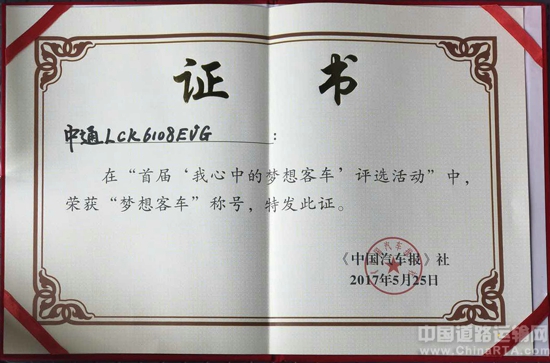 证 书
中通LCK6108EVG:
在“首届‘我心中的梦想客车’评选活动”中，
荣获“梦想客车”称号，特发此证。
《中国汽车报》社
2017年5月25日
中国道路运输网
www.ChinaRTA.com